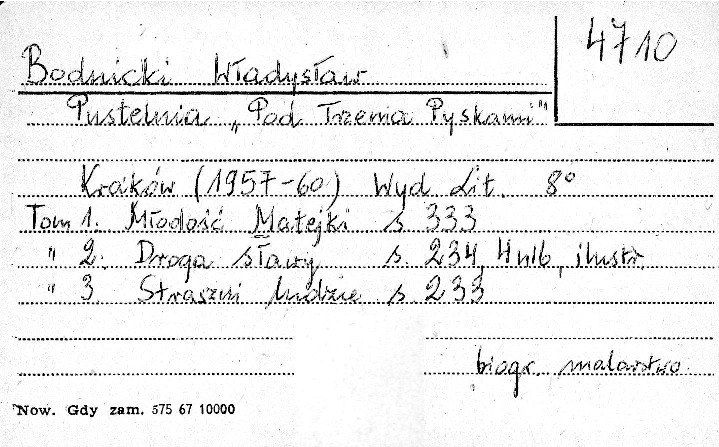 4710
Bodnicki Władysław
Pustelnia „Pod Trzema Pyskami"
Kraków (1957-60) Wyd Lit. 8°
Tom 1. Młodość Matejki s 333
" 2. Droga sławy s. 234, 4 nlb, ilustr.
" 3 Straszni ludzie s 233
biogr. malarstwo
Now. Gdy zam. 575 67 10000